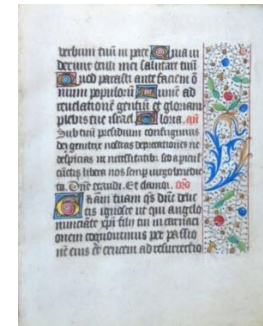 verbum tuū in pace Quia vi
derunt oculi mei salutare tuū
Quod parasti ante faciem o
mnium populorū Lumē ad
revelationē gentiū et gloriam
plebis tue israel Gloria. añ
Sub tuū presidium confugimus
dei genitrix nostras deprecationes ne
despicias in necessitatibꝯ sed a pericul
cunctis libera nos semp̄ virgo benedic
ta. Dn̄e exaudi. Et clamor. orō
Grām tuam qs dn̄e
tis ut qui angelo
nunciāte xp̄i filii tui incarnaci
onem cognovimus per passio
nē eius et crucem ad resurrectio